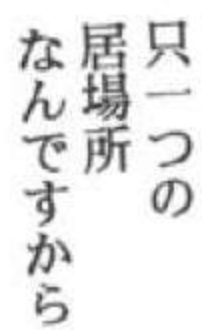 只一つの
居場所
なんですから